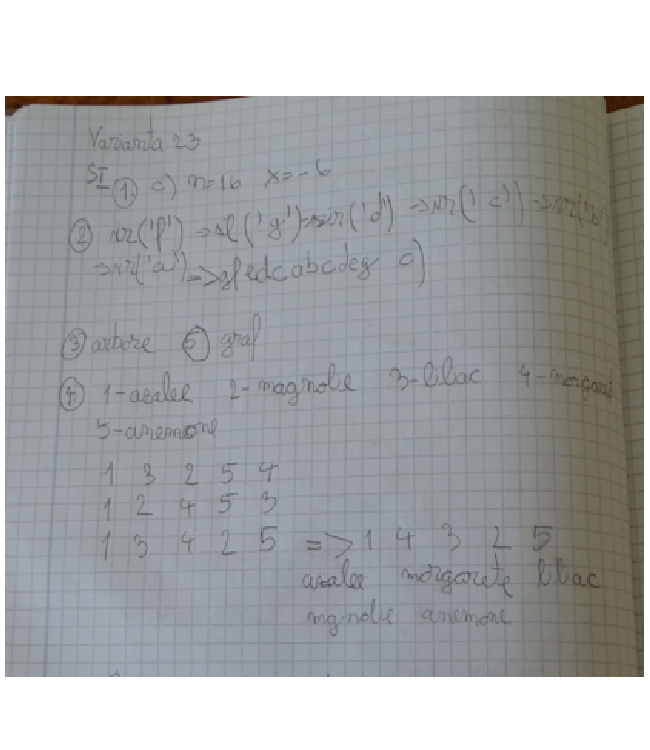 Varianta 23
SI ① c) n=16 x=-6
② sr('f') → sr('g') → sr('d') → sr('c') → sr('b')
→ sr('a') => gfedcabcdeg c)
③ arbore ⑤ graf
④ 1-azalee 2-magnolie 3-liliac 4-morgaret
5-anemone
1 3 2 5 4
1 2 4 5 3
1 3 4 2 5 => 1 4 3 2 5
azalee morgarete liliac
mgnolie anemone